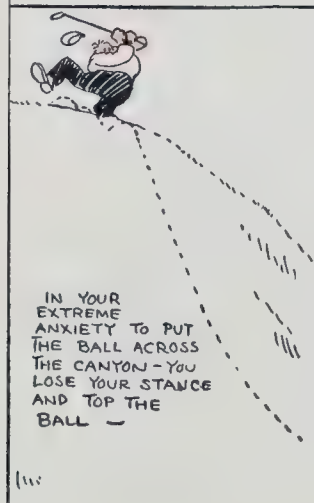 IN YOUR
EXTREME
ANXIETY TO PUT
THE BALL ACROSS
THE CANYON - YOU
LOSE YOUR STANCE
AND TOP THE
BALL —